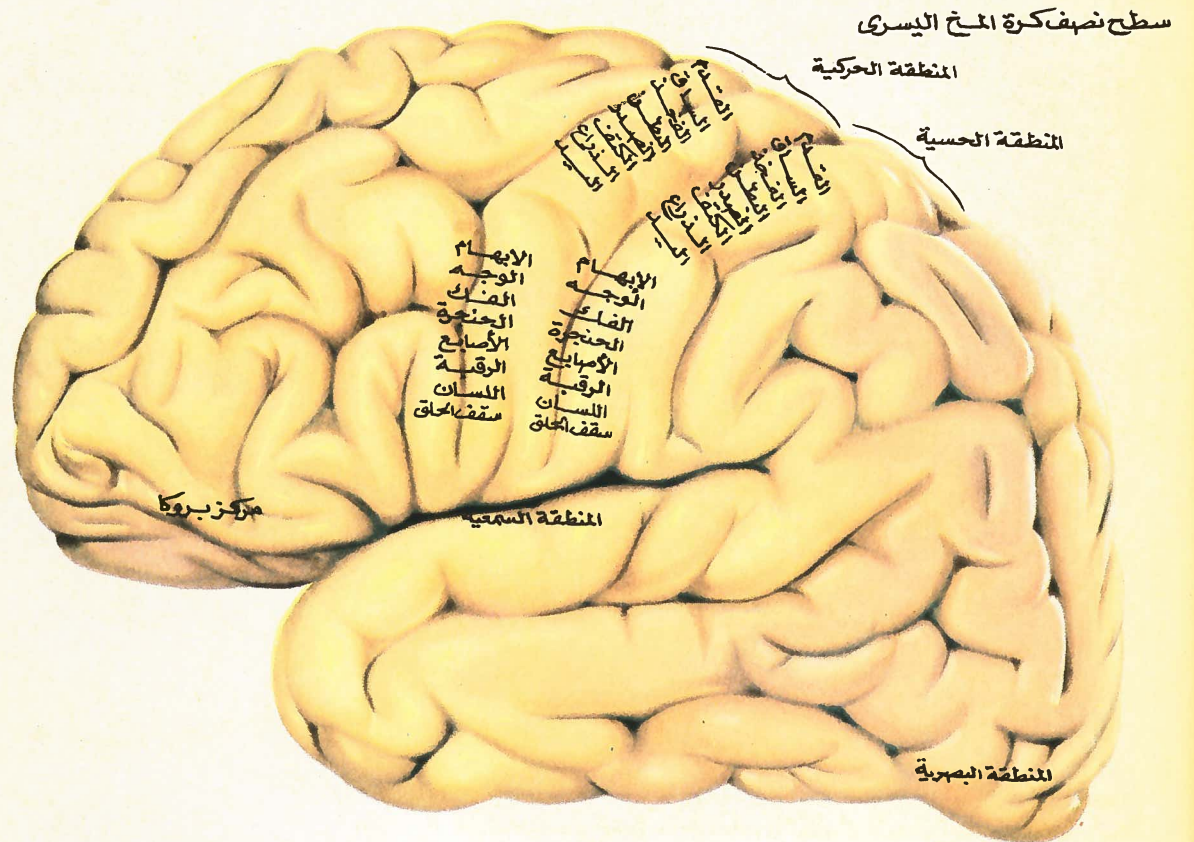 سطح نصف كرة المخ اليسرى
المنطقة الحركية
المنطقة الحسية
القدم
الساق
الفخذ
الجذع
الكتف
الذراع
اليد
القدم
الساق
الفخذ
الكتف
الذراع
اليد
الابهام
الوجه
الفك
الحنجرة
الأصابع
الرقبة
اللسان
سقف الحلق
الابهام
الوجه
الفك
الحنجرة
الأصابع
الرقبة
اللسان
سقف الحلق
مركز بروكا
المنطقة السمعية
المنطقة البصرية